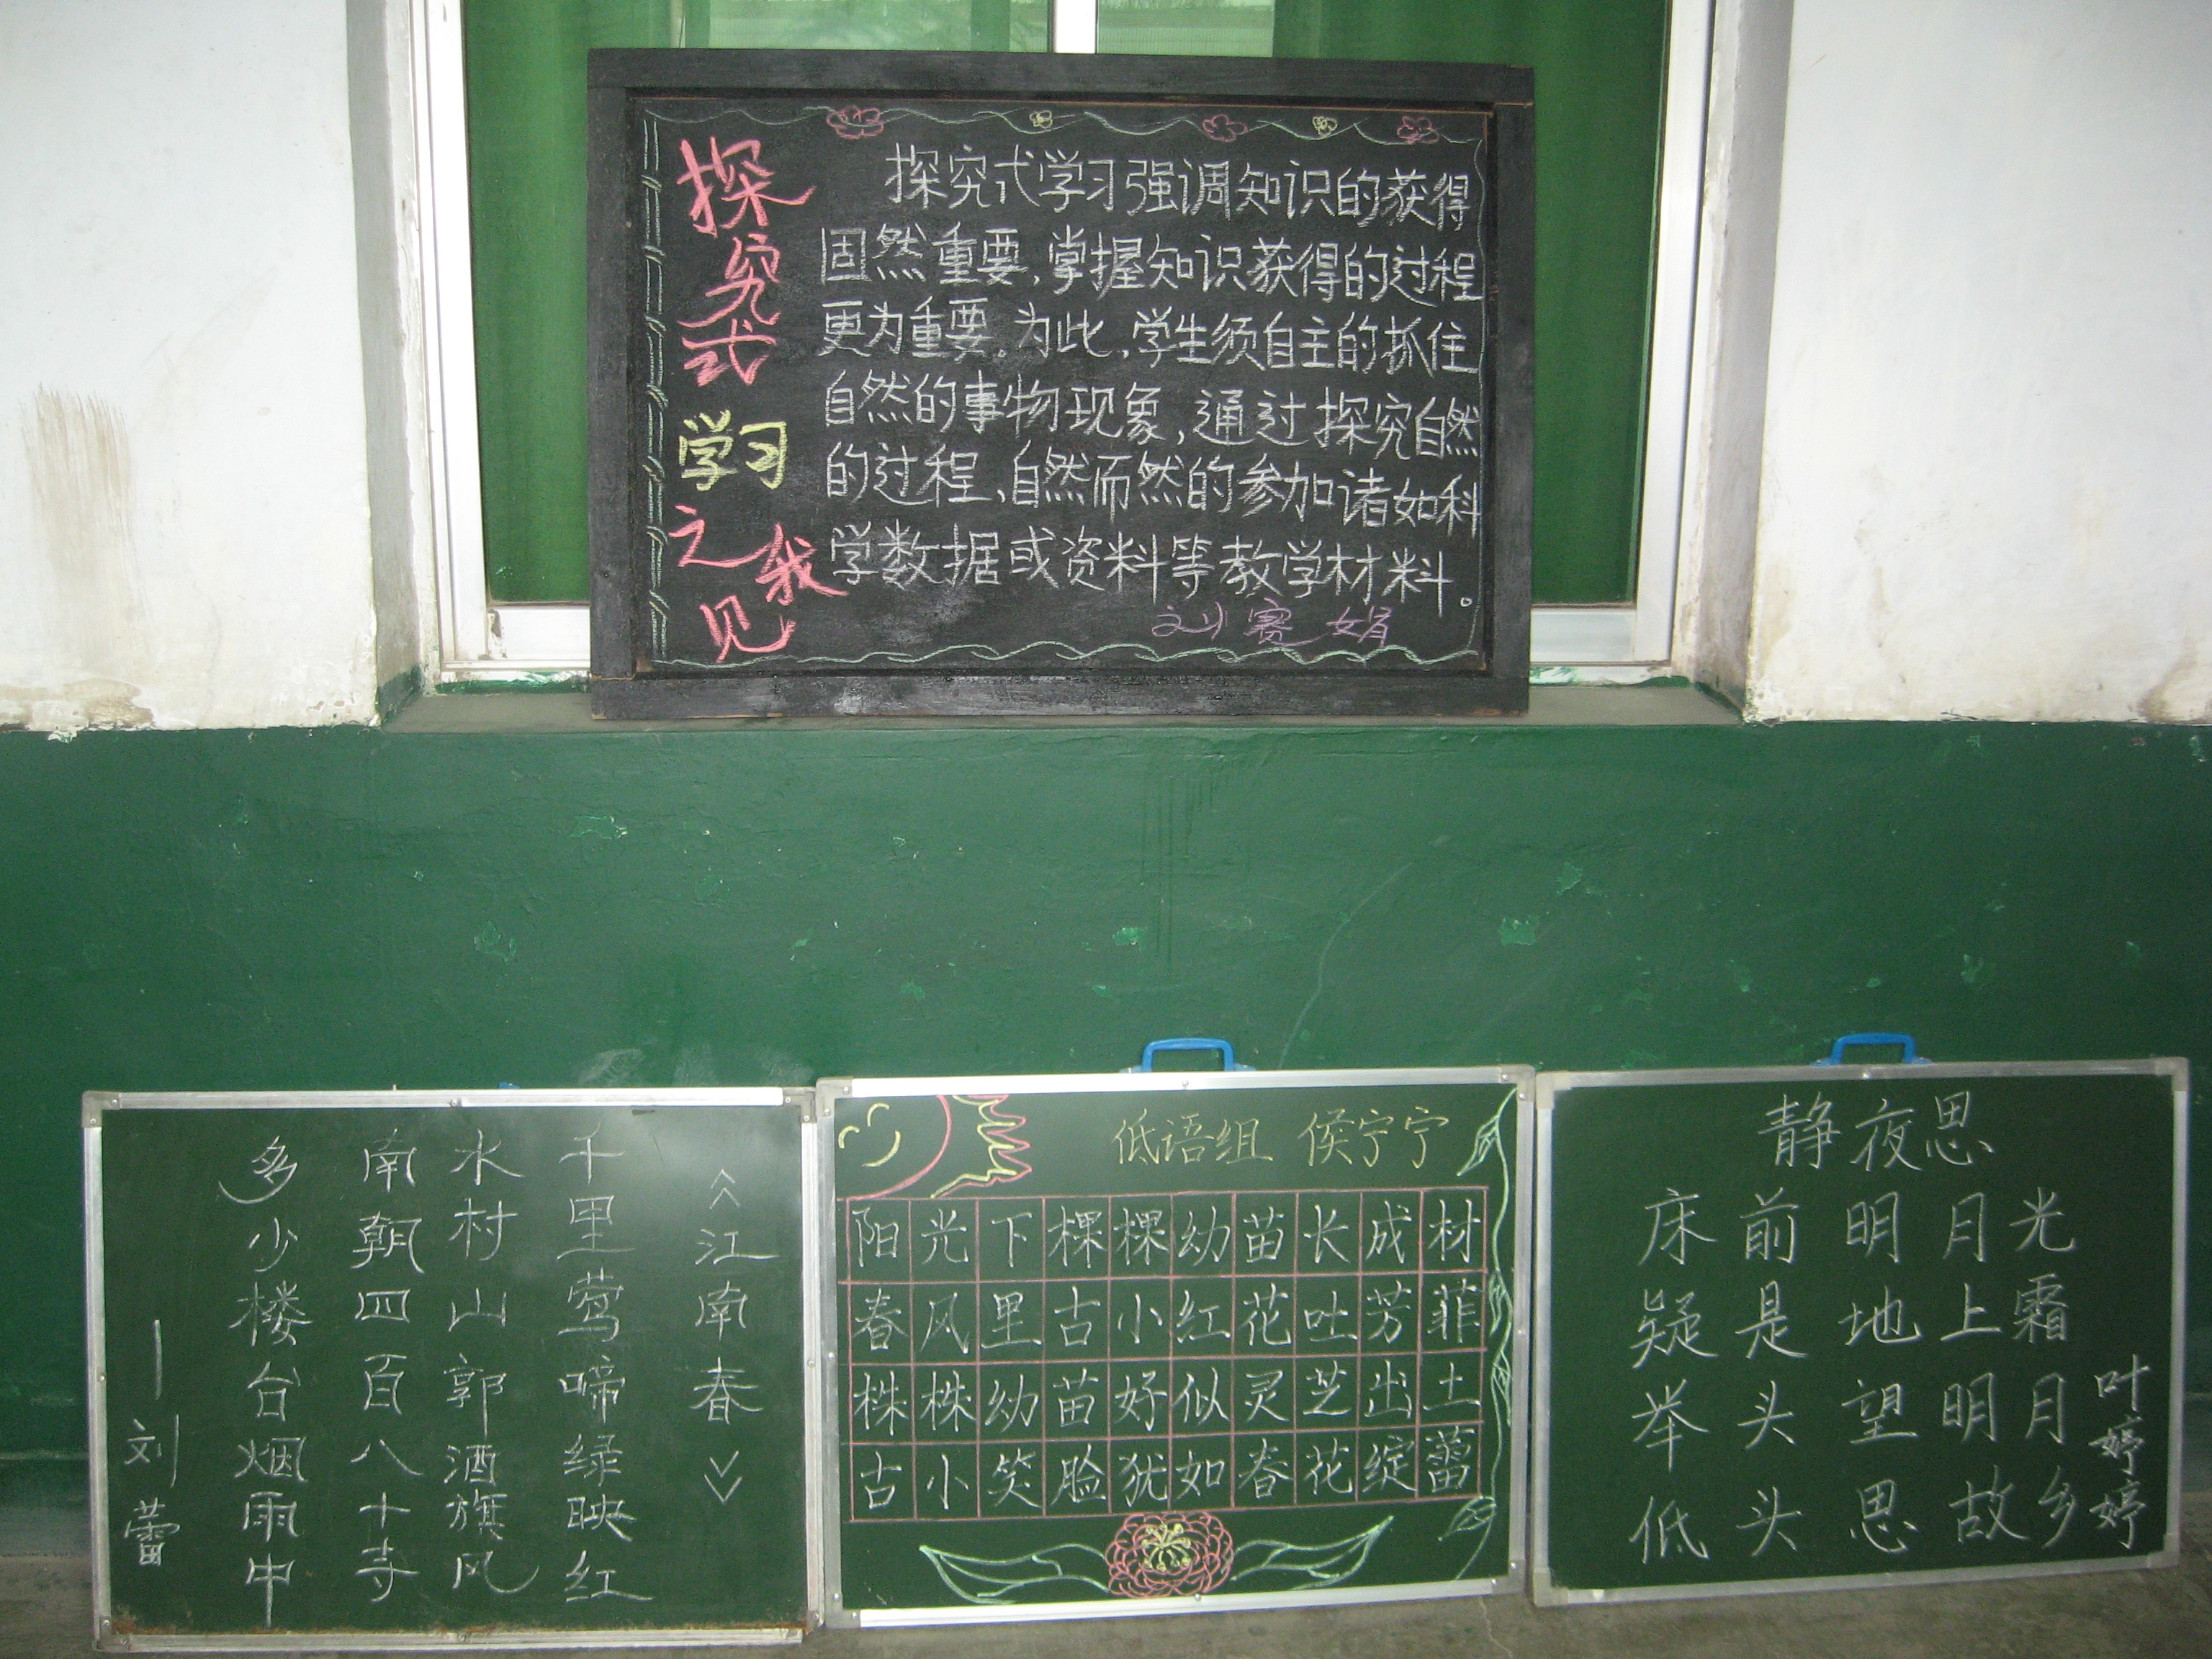 探究式学习之我见
探究式学习强调知识的获得
固然重要，掌握知识获得的过程
更为重要。为此，学生须自主的抓住
自然的事物现象，通过探究自然
的过程，自然而然的参加诸如科
学数据或资料等教学材料。
刘赛娟
《江南春》
千里莺啼绿映红
水村山郭酒旗风
南朝四百八十寺
多少楼台烟雨中
——刘蕾
低语组 侯宁宁
阳光下棵棵幼苗长成材
春风里古小红花吐芳菲
株株幼苗好似灵芝出土
古小笑脸犹如春花绽蕾
静夜思
床前明月光
疑是地上霜
举头望明月
低头思故乡
叶婷婷